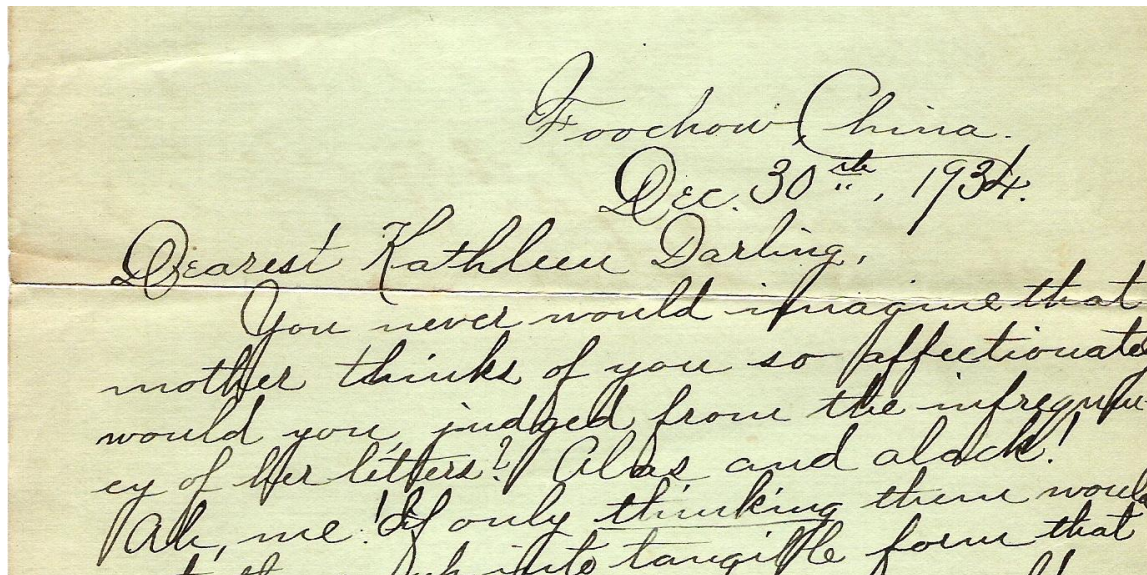 Foochow, China.
Dec. 30th, 1934.
Dearest Kathleen Darling,
You never would imagine that
mother thinks of you so affectionately
would you, judged from the infrequen-
cy of her letters? Alas and alack!
Ah, me! If only thinking them would
into tangible form that